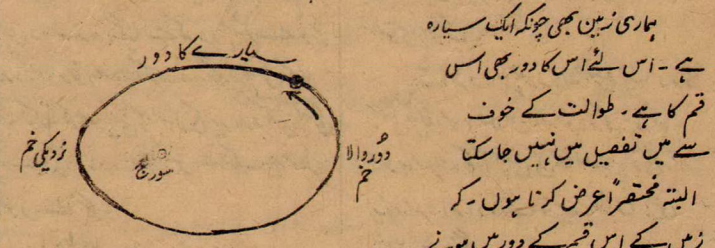 ہماری زمین بھی چونکہ ایک سیارہ
ہے - اس لئے اس کا دور بھی اسی
قسم کا ہے - طوالت کے خوف
سے میں تفصیل میں نہیں جا سکتا
البتہ مختصراً عرض کرتا ہوں - کہ
زمین کے اس قسم کے دور میں ہونے
سیارے کا دور
نزدیکی خم
سورج
دُور والا
خم